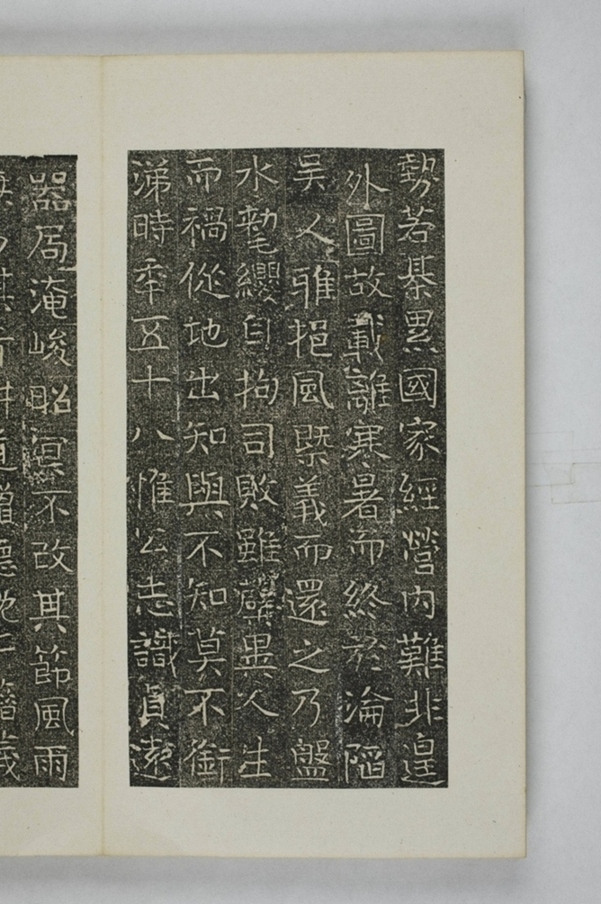 勢若綦累國家經營內難非遑
外圖故載離寒暑而終於淪陷
吳人雅挹風槩義而還之乃盤
水氂纓自拘司敗雖釁異人生
而禍從地出知與不知莫不銜
涕時年五十八惟公志識貞遠
器局淹峻昭冥不改其節風雨